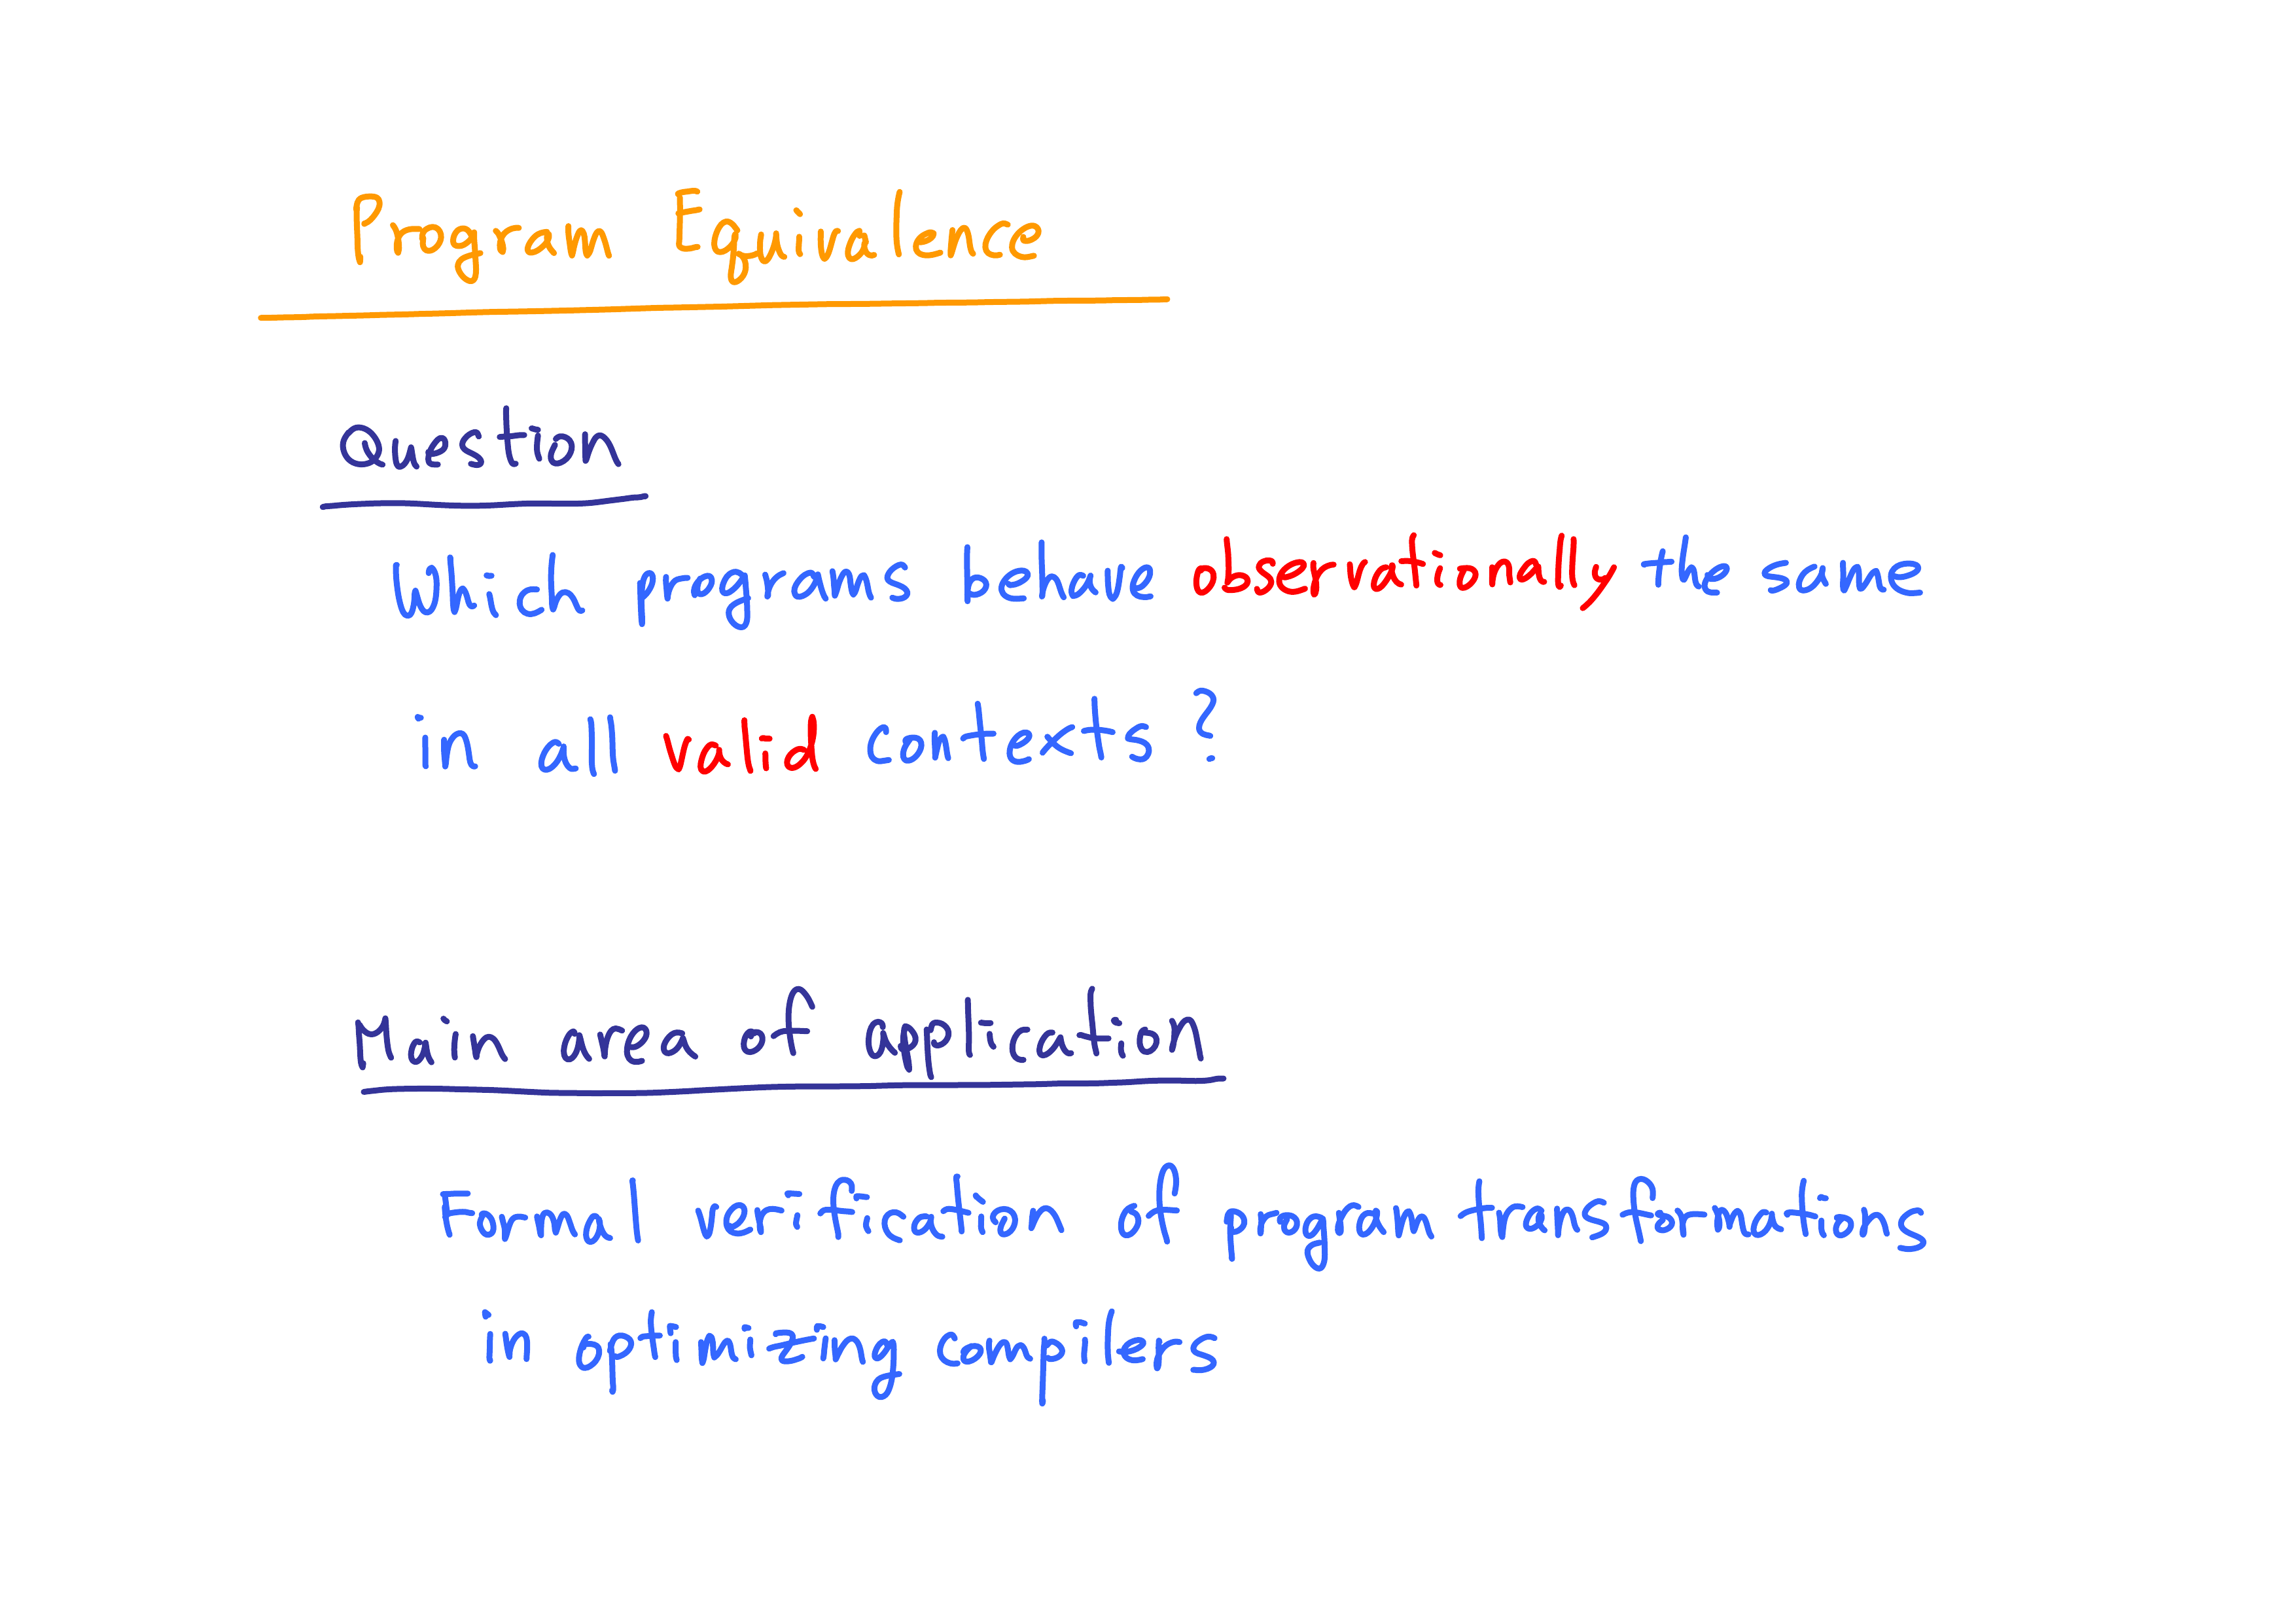 Program Equivalence
Question
Which programs behave observationally the same
in all valid contexts ?
Main area of application
Formal verification of program transformations
in optimizing compilers